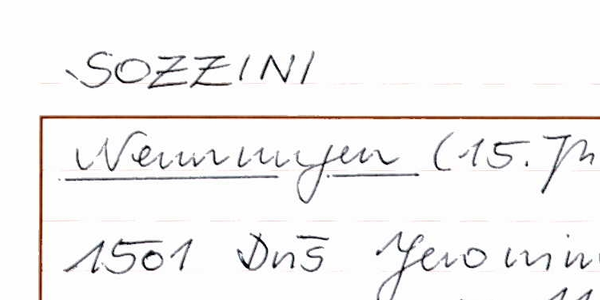 SOZZINI
Nennungen (15. Jh
1501 Dn̄s Jeronim